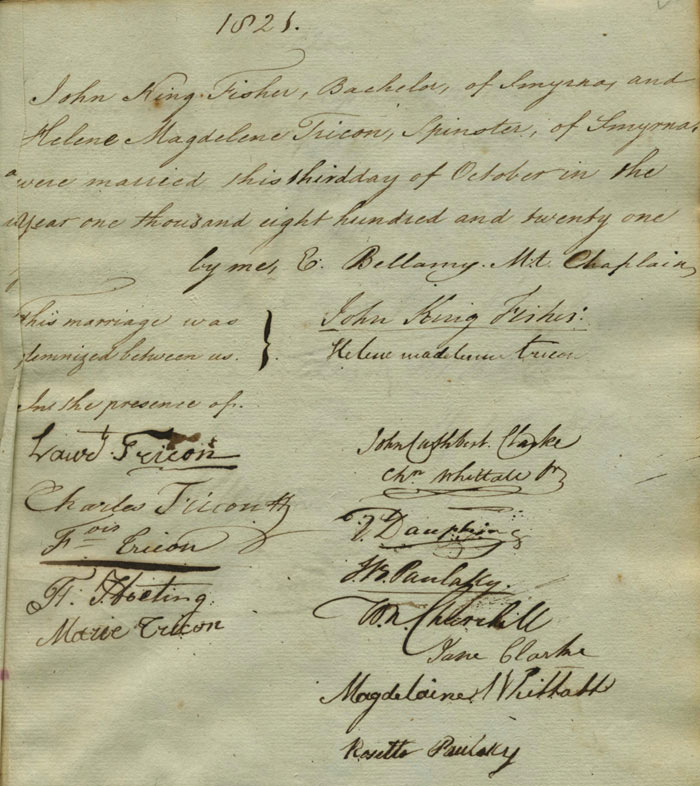 1821.
John King Fisher, Bachelor, of Smyrna, and
Helene Magdelene Tricon, Spinster, of Smyrna,
were married this third day of October in the
Year one thousand eight hundred and twenty one
by me, E. Bellamy. M.A. Chaplain
This marriage was
solemnized between us.
John King Fisher.
Helene madeleine tricon
In the presence of.
Lawt. Tricon
Charles Tricon
Fois Tricon
Marie Tricon
John Cuthbert Clarke
Chs. Whittall Jr
J. Dauphin
J.B. Paulaky.
Wm. Churchill
Jane Clarke
Magdelaine Whittall
Rosette Paulaky